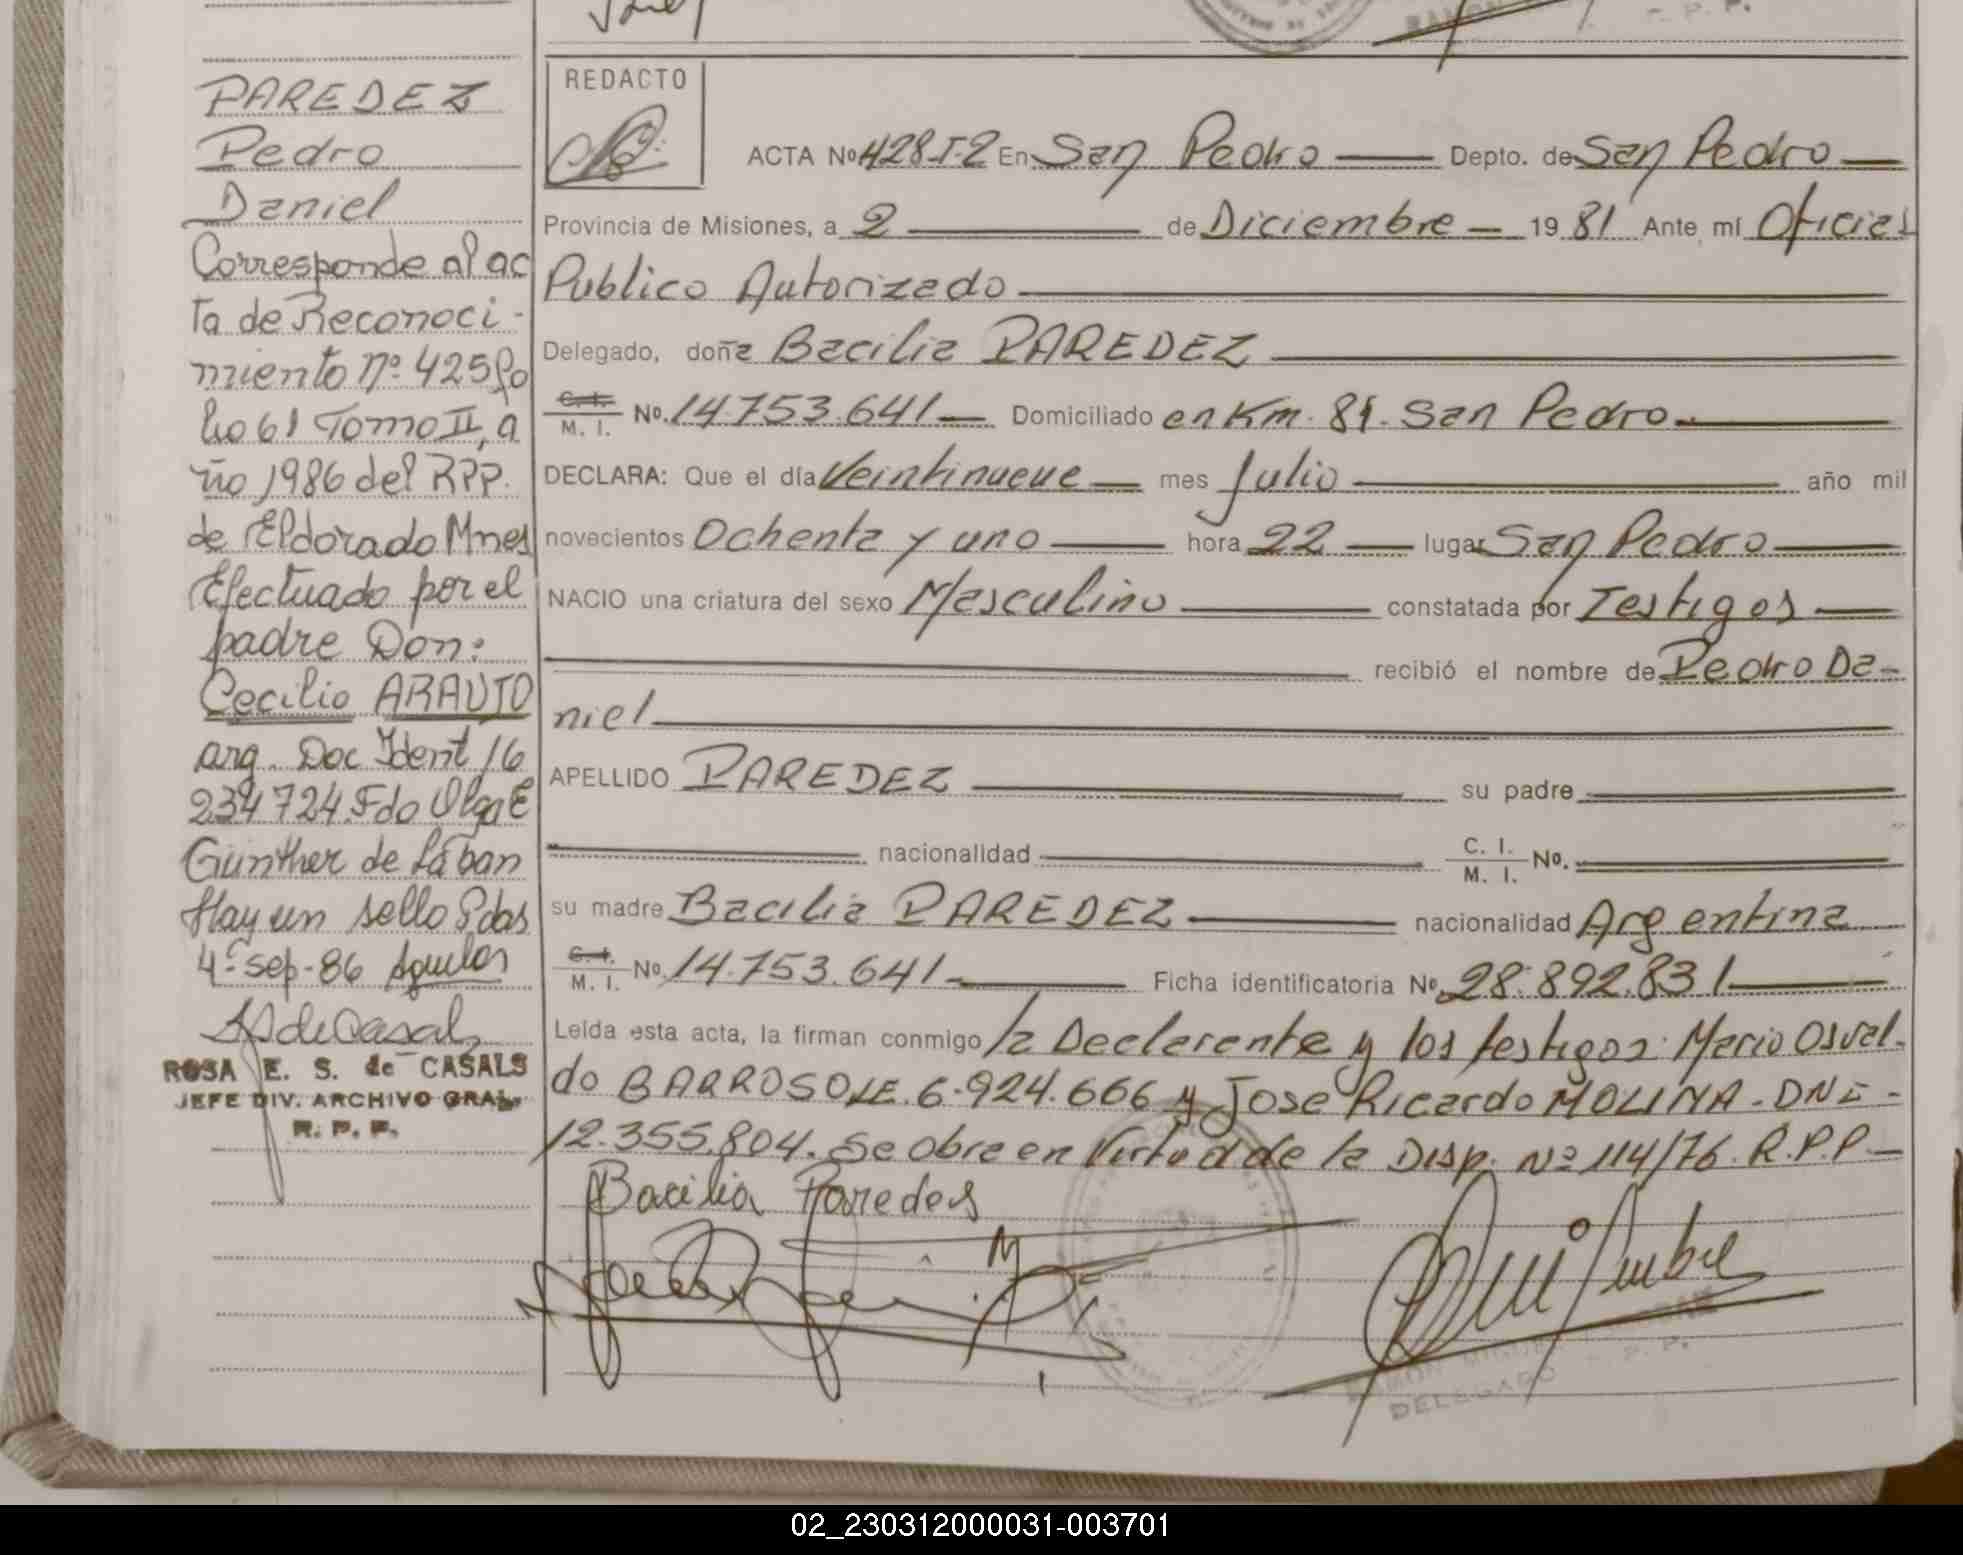 PAREDEZ
Pedro
Daniel
Corresponde al ac
ta de Reconoci-
miento Nº 425 fo
lio 61 Tomo II, a
ño 1986 del RPP.
de Eldorado Mnes
Efectuado por el
padre Don:
Cecilio ARAUJO
arg. Doc Ident 16
234724. Fdo Olga E
Günther de Laban
Hay un sello Pdas
4-sep-86
ROSA E. S. de CASALS
JEFE DIV. ARCHIVO GRAL.
R. P. P.
REDACTO
ACTA Nº 428-T-2 En San Pedro Depto. de San Pedro
Provincia de Misiones, a 2 de Diciembre 1981 Ante mí Oficial
Publico Autorizado
Delegado, doña Bacilia PAREDEZ
C. I. / M. I. Nº. 14.753.641 Domiciliado en Km. 81. San Pedro.
DECLARA: Que el día Veintinueve mes Julio año mil
novecientos Ochenta y uno hora 22 lugar San Pedro
NACIO una criatura del sexo Masculino constatada por Testigos
recibió el nombre de Pedro Da-
niel
APELLIDO PAREDEZ su padre
nacionalidad C. I. / M. I. Nº.
su madre Bacilia PAREDEZ nacionalidad Argentina
C. I. / M. I. Nº. 14.753.641 Ficha identificatoria Nº 28.892.831
Leída esta acta, la firman conmigo la Declarente y los testigos: Mario Osval-
do BARROSO LE. 6.924.666 y Jose Ricardo MOLINA - DNI -
12.355.804. Se obra en Virtud de la Disp. Nº 114/76. R.P.P.
Bacilia Paredes
DELEGADO
02_230312000031-003701